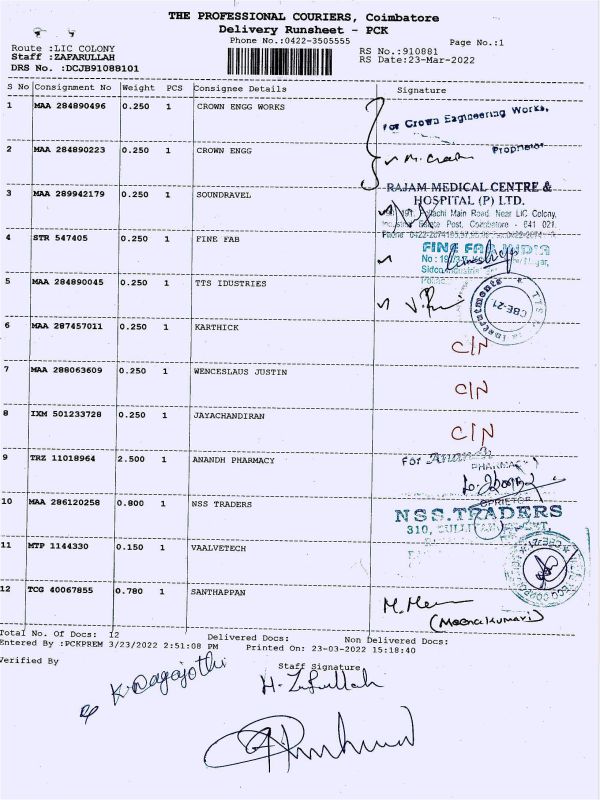 THE PROFESSIONAL COURIERS, Coimbatore
Delivery Runsheet - PCK
Phone No.:0422-3505555 Page No.:1
Route :LIC COLONY
Staff :ZAFARULLAH
DRS No. :DCJB91088101
RS No.:910881
RS Date:23-Mar-2022
S No Consignment No Weight PCS Consignee Details Signature
1 MAA 284890496 0.250 1 CROWN ENGG WORKS
For Crown Engineering Works,
2 MAA 284890223 0.250 1 CROWN ENGG
Proprietor
3 MAA 289942179 0.250 1 SOUNDRAVEL
RAJAM MEDICAL CENTRE &
HOSPITAL (P) LTD.
Main Road, Near LIC Colony,
Post, Coimbatore - 641 021.
4 STR 547405 0.250 1 FINE FAB
FINE FAB INDIA
5 MAA 284890045 0.250 1 TTS IDUSTRIES
CBE-21
6 MAA 287457011 0.250 1 KARTHICK
C/N
7 MAA 288063609 0.250 1 WENCESLAUS JUSTIN
C/N
8 IXM 501233728 0.250 1 JAYACHANDIRAN
C/N
9 TRZ 11018964 2.500 1 ANANDH PHARMACY
For Anandh
PHARMACY
10 MAA 286120258 0.800 1 NSS TRADERS
NSS.TRADERS
310,
11 MTP 1144330 0.150 1 VAALVETECH
12 TCG 40067855 0.780 1 SANTHAPPAN
(Meenakumari)
Total No. Of Docs: 12 Delivered Docs: Non Delivered Docs:
Entered By :PCKPREM 3/23/2022 2:51:08 PM Printed On: 23-03-2022 15:18:40
Verified By Staff Signature
K Nagajothi
H. Zafrullah